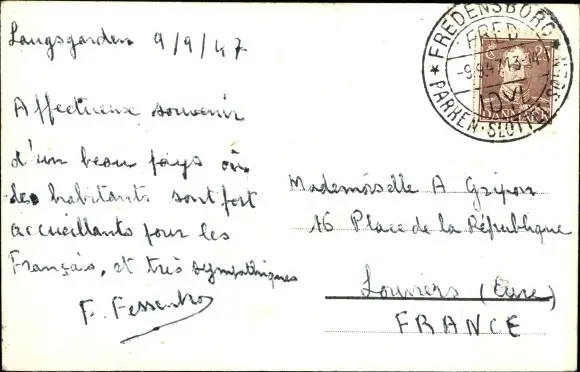 Langsgarden 9/9/47
Affectueux souvenir
d'un beau pays où
des habitants sont fort
accueillants pour les
Français, et très sympathiques
F.
FREDENSBORG
FRED
-9.9.47.13-14
IDYL
PARKEN·SLOTTET
DANMARK
Mademoiselle A Gripon
16 Place de la République
Louviers (Eure)
FRANCE